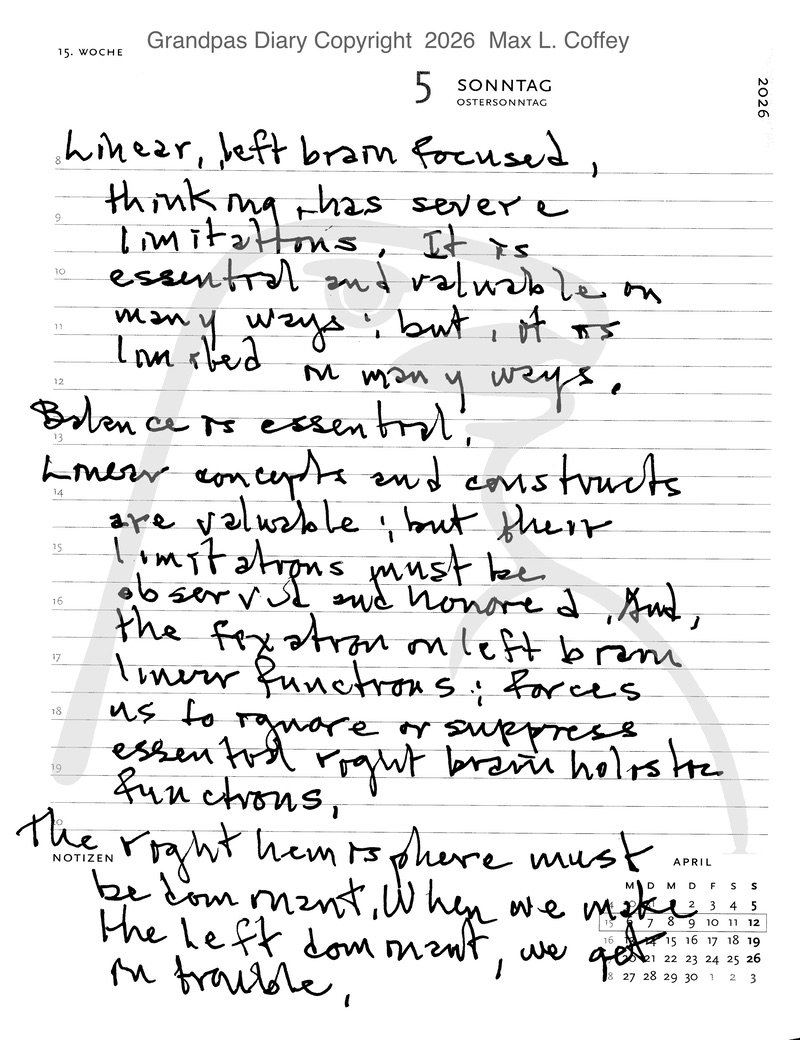 Grandpas Diary Copyright 2026 Max L. Coffey
15. WOCHE
5 SONNTAG
OSTERSONNTAG
2026
8 Linear, left brain focused,
thinking, has severe
9 limitations. It is
10 essential and valuable in
11 many ways; but, it is
limited in many ways.
12
Balance is essential.
13
Linear concepts and constructs
14
are valuable; but their
15 limitations must be
observed and honored. And,
16 the fixation on left brain
17 linear functions; forces
18 us to ignore or suppress
essential right brain holistic
19 functions.
20
The right hemisphere must
NOTIZEN
APRIL
be dominant. When we make
the left dominant, we get
in trouble.
M D M D F S S
2 3 4 5
15 6 7 8 9 10 11 12
16 14 15 16 17 18 19
21 22 23 24 25 26
18 27 28 29 30 1 2 3